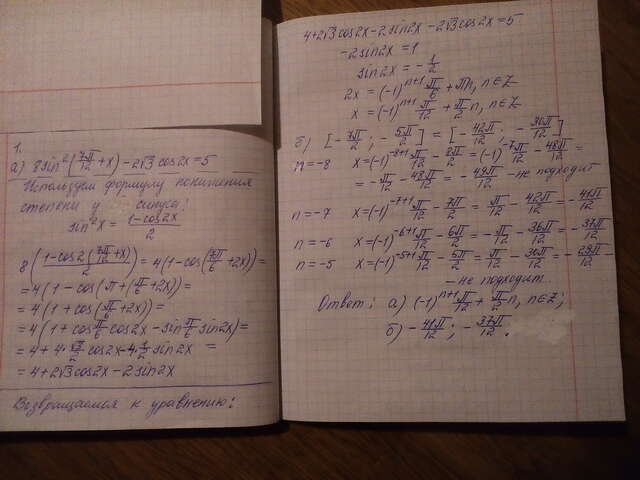 1.
а) 8sin²(7π/12+x)-2√3cos2x=5
Используем формулу понижения
степени у синуса:
sin²x = (1-cos2x)/2
8((1-cos2(7π/12+x))/2)=4(1-cos(7π/6+2x))=
=4(1-cos(π+(π/6+2x))=
=4(1+cos(π/6+2x))=
=4(1+cosπ/6cos2x-sinπ/6sin2x)=
=4+4·√3/2cos2x-4·1/2sin2x =
=4+2√3cos2x-2sin2x
Возвращаемся к уравнению:
4+2√3cos2x-2sin2x-2√3cos2x=5
-2sin2x=1
sin2x=-1/2
2x=(-1)ⁿ⁺¹π/6+πn, n∈Z
x=(-1)ⁿ⁺¹π/12+π/2n, n∈Z
б) [-7π/2; -5π/2]=[-42π/12; -30π/12]
n=-8 x=(-1)⁻⁸⁺¹π/12-8π/2=(-1)⁻⁷π/12-48π/12=
=-π/12-48π/12=-49π/12-не подходит
n=-7 x=(-1)⁻⁷⁺¹π/12-7π/2=π/12-42π/12=-41π/12
n=-6 x=(-1)⁻⁶⁺¹π/12-6π/2=-π/12-36π/12=-37π/12
n=-5 x=(-1)⁻⁵⁺¹π/12-5π/2=π/12-30π/12=-29π/12-
-не подходит
Ответ: а) (-1)ⁿ⁺¹π/12+π/2n, n∈Z;
б) -41π/12; -37π/12.